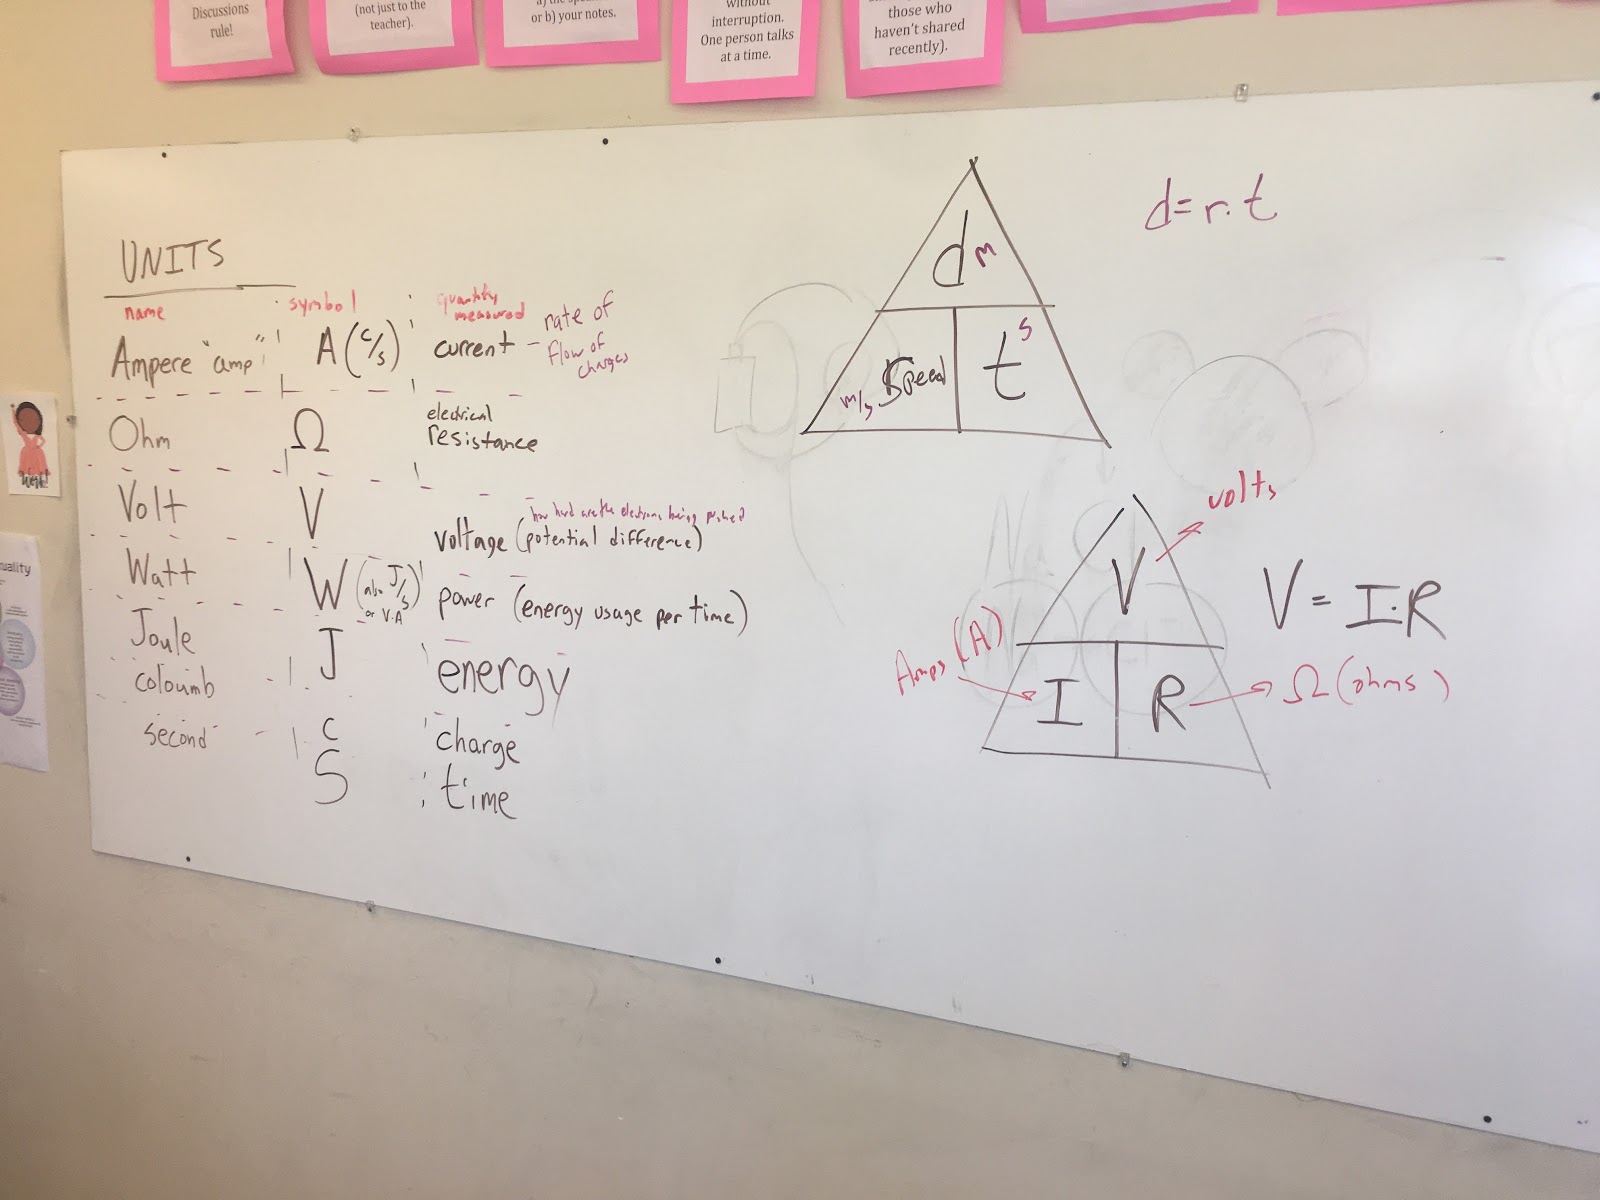 Discussions
rule!
(not just to the
teacher).
or b) your notes.
without
interruption.
One person talks
at a time.
those who
haven't shared
recently).
UNITS
name symbol quantity measured
Ampere "amp" A (C/s) current - rate of flow of charges
Ohm Ω electrical resistance
how hard are the electrons being pushed
Volt V voltage (potential difference)
Watt W (also J/s or V·A) power (energy usage per time)
Joule J energy
coloumb C charge
second S time
d m
m/s Speed
t s
d = r · t
V
volts
Amps (A)
I
R
Ω (ohms)
V = I·R
Work!
uality